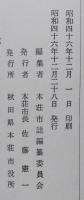 昭和四十六年十二月一日 印刷
昭和四十六年十二月二十八日 発行
編集者 本荘市誌編纂委員会
発行者 本荘市長 佐藤憲一
発行所 秋田県本荘市役所